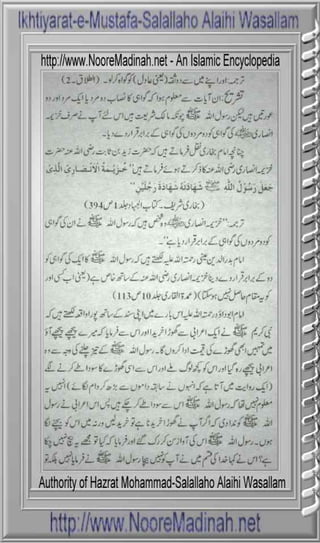 Ikhtiyarat-e-Mustafa-Salallaho Alaihi Wasallam
http://www.NooreMadinah.net - An Islamic Encyclopedia
ترجمہ: اور اپنے میں سے دو ثقہ (یعنی عادل) کو گواہ کر لو۔ (الطلاق۔2)
تشریح: ان آیات سے معلوم ہوا کہ گواہی کا نصاب دو مرد یا ایک مرد اور دو
عورتیں ہیں لیکن رسول اللہ ﷺ چونکہ مالک شریعت ہیں اس لئے آپ نے صرف خزیمہ
انصاری کی گواہی کو دو مردوں کی گواہی کے برابر قرار دے دیا۔
چنانچہ امام بخاری نقل فرماتے ہیں کہ حضرت زید بن ثابت رضی اللہ عنہ حضرت
خزیمہ انصاری رضی اللہ عنہ کا ذکر کرتے ہوئے فرماتے ہیں "خُزَيْمَةُ الْاَنْصَارِيِّ الَّذِيْ
جَعَلَ رَسُوْلُ اللّٰهِ ﷺ شَهَادَتَهٗ شَهَادَةَ رَجُلَيْنِ"
(بخاری شریف۔ کتاب الجہاد جلد 1 ص 394)
ترجمہ: "خزیمہ انصاری وہ شخص ہیں کہ رسول اللہ ﷺ نے ان کی گواہی
کو دو مردوں کی گواہی کے برابر قرار دیا ہے"۔
امام بدر الدین عینی رحمتہ اللہ علیہ لکھتے ہیں کہ رسول اللہ ﷺ کا ایک کی گواہی کو
دو کے برابر قرار دے دینا خزیمہ انصاری رضی اللہ عنہ کے ساتھ خاص ہے (یعنی اب کسی اور
کو یہ مقام حاصل نہیں ہو سکتا) (عمدۃ القاری جلد 10 ص 113)
امام ابو داؤد رحمتہ اللہ علیہ اس بارے میں اپنی سند کے ساتھ پورا واقعہ لکھتے ہیں کہ
نبی کریم ﷺ نے ایک اعرابی سے گھوڑا خریدا اور اس سے فرمایا کہ میرے پیچھے پیچھے آؤ
میں تمہیں ابھی گھوڑے کی قیمت ادا کروں گا۔ رسول اللہ ﷺ کے تیز چلنے کی وجہ سے وہ
اعرابی پیچھے رہ گیا اور اس کو کچھ لوگ ملے اور اس سے اسی گھوڑے کا سودا طے کرنے لگے
(ایک روایت میں آتا ہے کہ انہوں نے سابقہ داموں سے بڑھ کر دام لگائے) انہیں یہ
معلوم نہیں تھا کہ رسول اللہ ﷺ اس سے سودا طے کر چکے ہیں پس اس اعرابی نے رسول
اللہ ﷺ کو ندا دی کہ اگر آپ نے گھوڑا خریدنا ہے تو خرید لیں ورنہ میں اس کو بیچنے لگا
ہوں۔ رسول اللہ ﷺ اس کی آواز سن کر رک گئے اور فرمایا کہ کیا تو مجھے یہ بیچ نہیں چکا
ہے؟ اس نے کہا خدا کی قسم میں نے آپ کو نہیں بیچا رسول اللہ ﷺ نے فرمایا نہیں بلکہ تو
Authority of Hazrat Mohammad-Salallaho Alaihi Wasallam
http://www.NooreMadinah.net